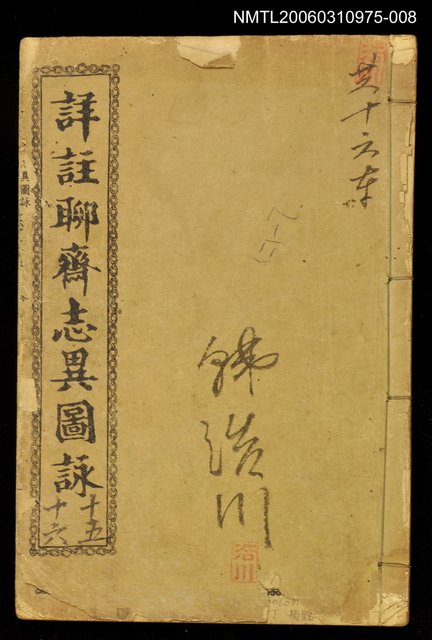 NMTL20060310975-008
共十六本
詳註聊齋志異圖詠
十五
十六
浩川